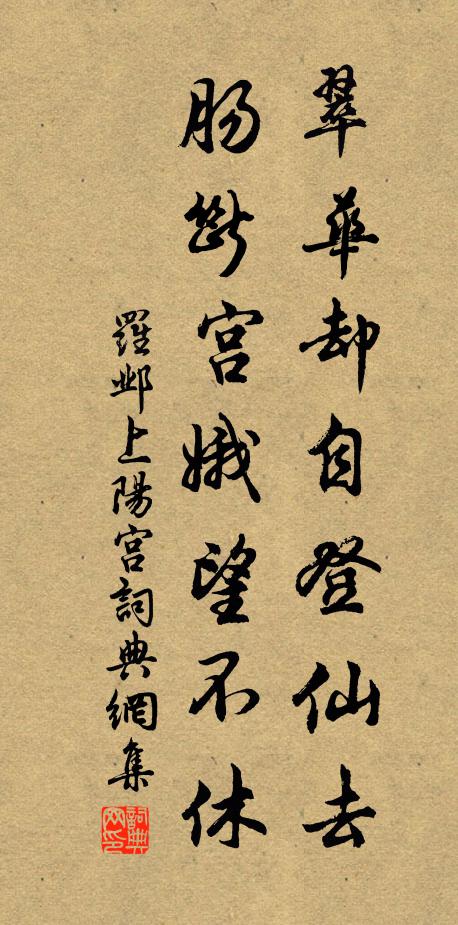 翠華却自登仙去
腸斷宮娥望不休
羅鄴上陽宮詞典網集
詞典网印